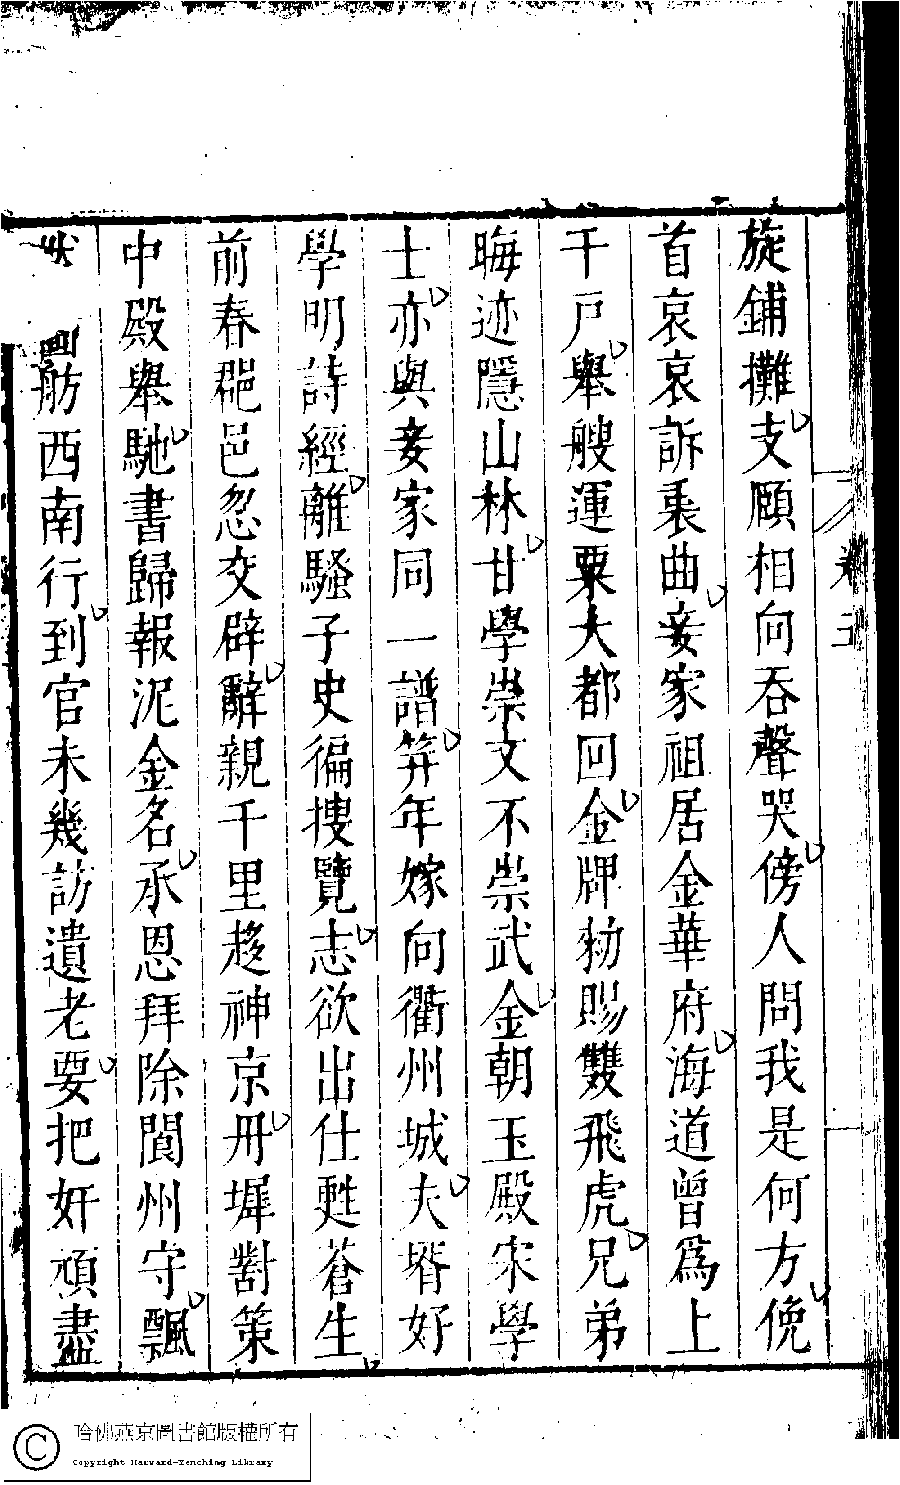 旋鋪攤支頤相向吞聲哭傍人問我是何方俛
首哀哀訴衷曲妾家祖居金華府海道曾為上
千戶舉艘運粟大都回金牌勑賜雙飛虎兄弟
晦迹隱山林甘學崇文不崇武金朝玉殿宋學
士亦與妾家同一譜笄年嫁向衢州城夫壻好
學明詩經離騷子史徧搜覽志欲出仕甦蒼生
前春郡邑忽交辟辭親千里趍神京丹墀對策
中殿舉馳書歸報泥金名承恩拜除閬州守飄
舫西南行到官未幾訪遺老要把奸頑盡
卷五
哈佛燕京圖書館版權所有
Copyright Harvard-Yenching Library